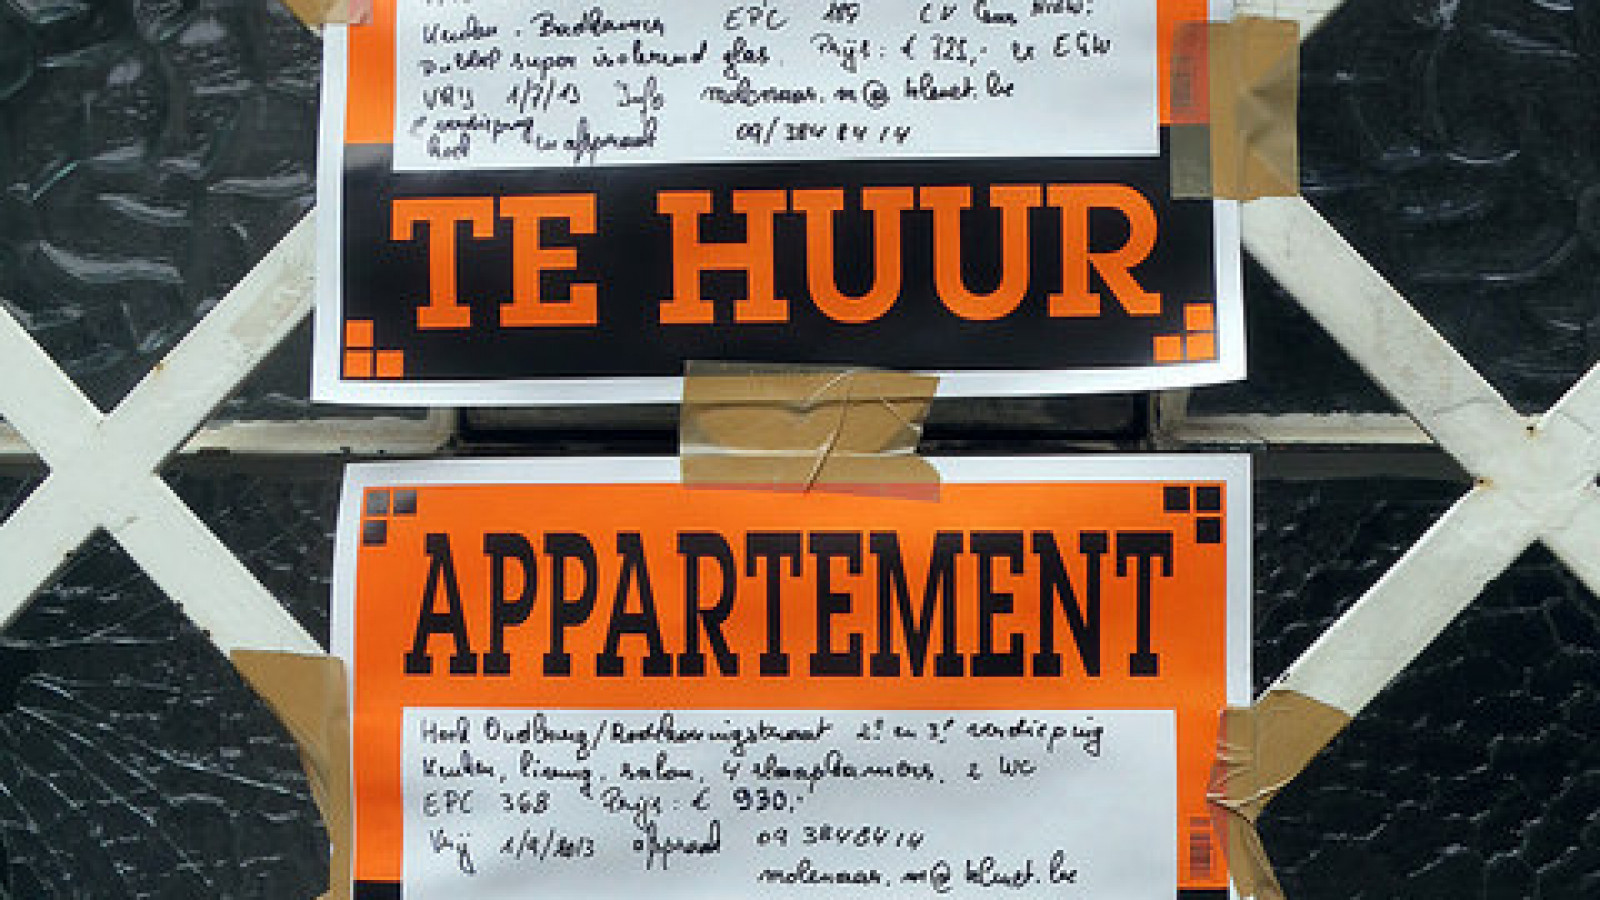 Keuken - Badkamer EPC 187 CV Gas
dubbel super isolerend glas. Prijs: € 325,- EGW
VRIJ 1/7/13 Info molenaar.m@telenet.be
verdieping
op afspraak 09/384 84 14
TE HUUR
APPARTEMENT
Hoek Oudburg/Rodekoningstraat 2e en 3e verdieping
Keuken, living, salon, 4 slaapkamers, 2 WC
EPC 368 Prijs: € 930,-
Vrij 1/9/2013 afspraak 09 384 84 14
molenaar.m@telenet.be